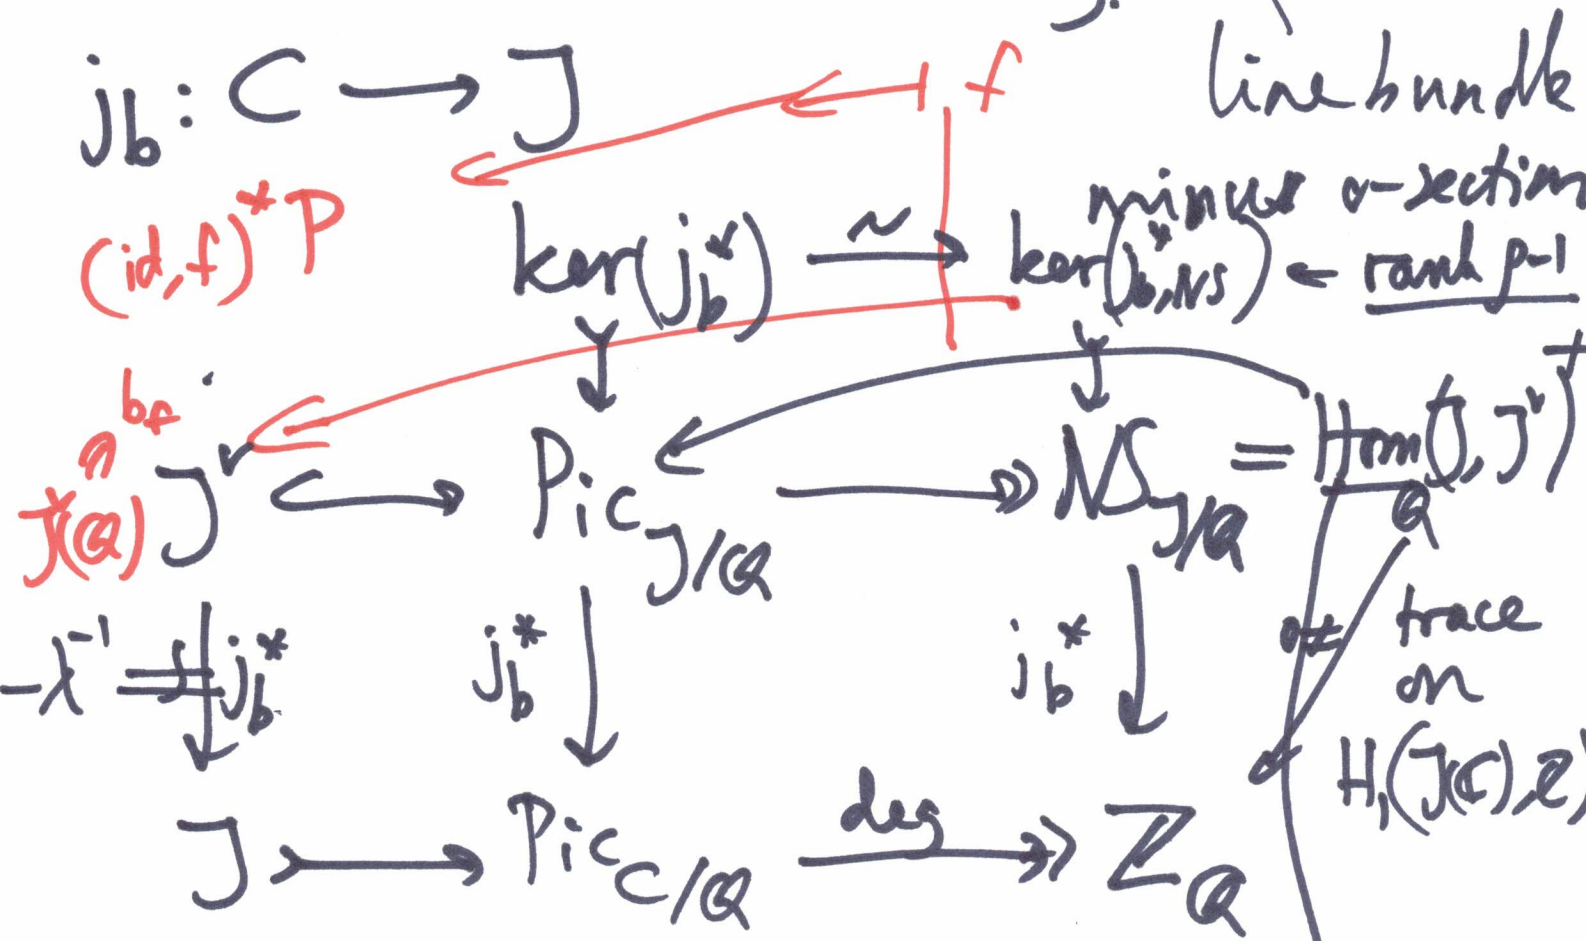 j_b : C ⟶ J ⟵| f
line bundle
minus 0-section
(id, f)^* P
ker(j_b^*) ⥲ ker(j_{b,NS}^*) ← rank ρ-1
b_f
∩
J^v(Q)
J^v ↪ Pic_{J/Q} ↠ NS_{J/Q} = Hom(J, J^v)^+_Q
-λ^{-1} = j_b^*
j_b^*
j_b^*
0 ≠ trace
on
H_1(J(C), Z)
J ↣ Pic_{C/Q} deg ↠ Z_Q